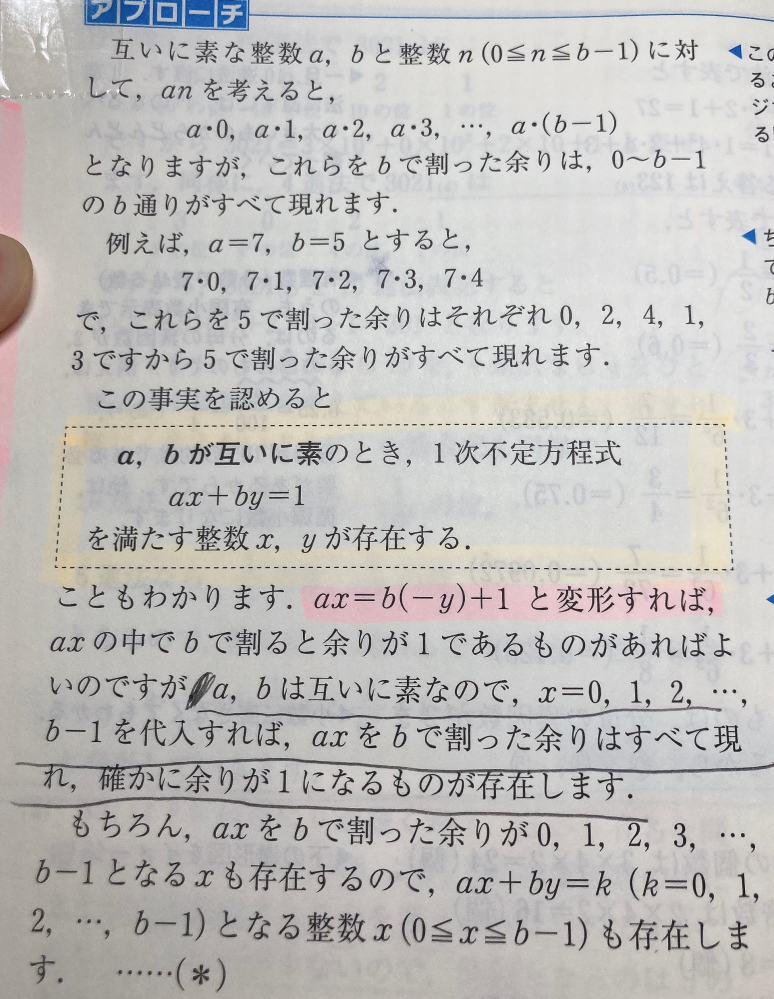 アプローチ
互いに素な整数a，bと整数n(0≦n≦b−1)に対
して，anを考えると，
a・0，a・1，a・2，a・3，…，a・(b−1)
となりますが，これらをbで割った余りは，0〜b−1
のb通りがすべて現れます．
例えば，a=7，b=5とすると，
7・0，7・1，7・2，7・3，7・4
で，これらを5で割った余りはそれぞれ0，2，4，1，
3ですから5で割った余りがすべて現れます．
この事実を認めると
a，bが互いに素のとき，1次不定方程式
ax+by=1
を満たす整数x，yが存在する．
こともわかります．ax=b(−y)+1と変形すれば，
axの中でbで割ると余りが1であるものがあればよ
いのですが a，bは互いに素なので，x=0，1，2，…，
b−1を代入すれば，axをbで割った余りはすべて現
れ，確かに余りが1になるものが存在します．
もちろん，axをbで割った余りが0，1，2，3，…，
b−1となるxも存在するので，ax+by=k (k=0，1，
2，…，b−1)となる整数x(0≦x≦b−1)も存在しま
す． ……(*)